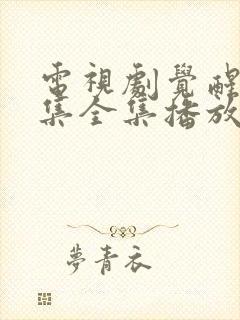 電視劇覺醒
集全集播放
夢青衣